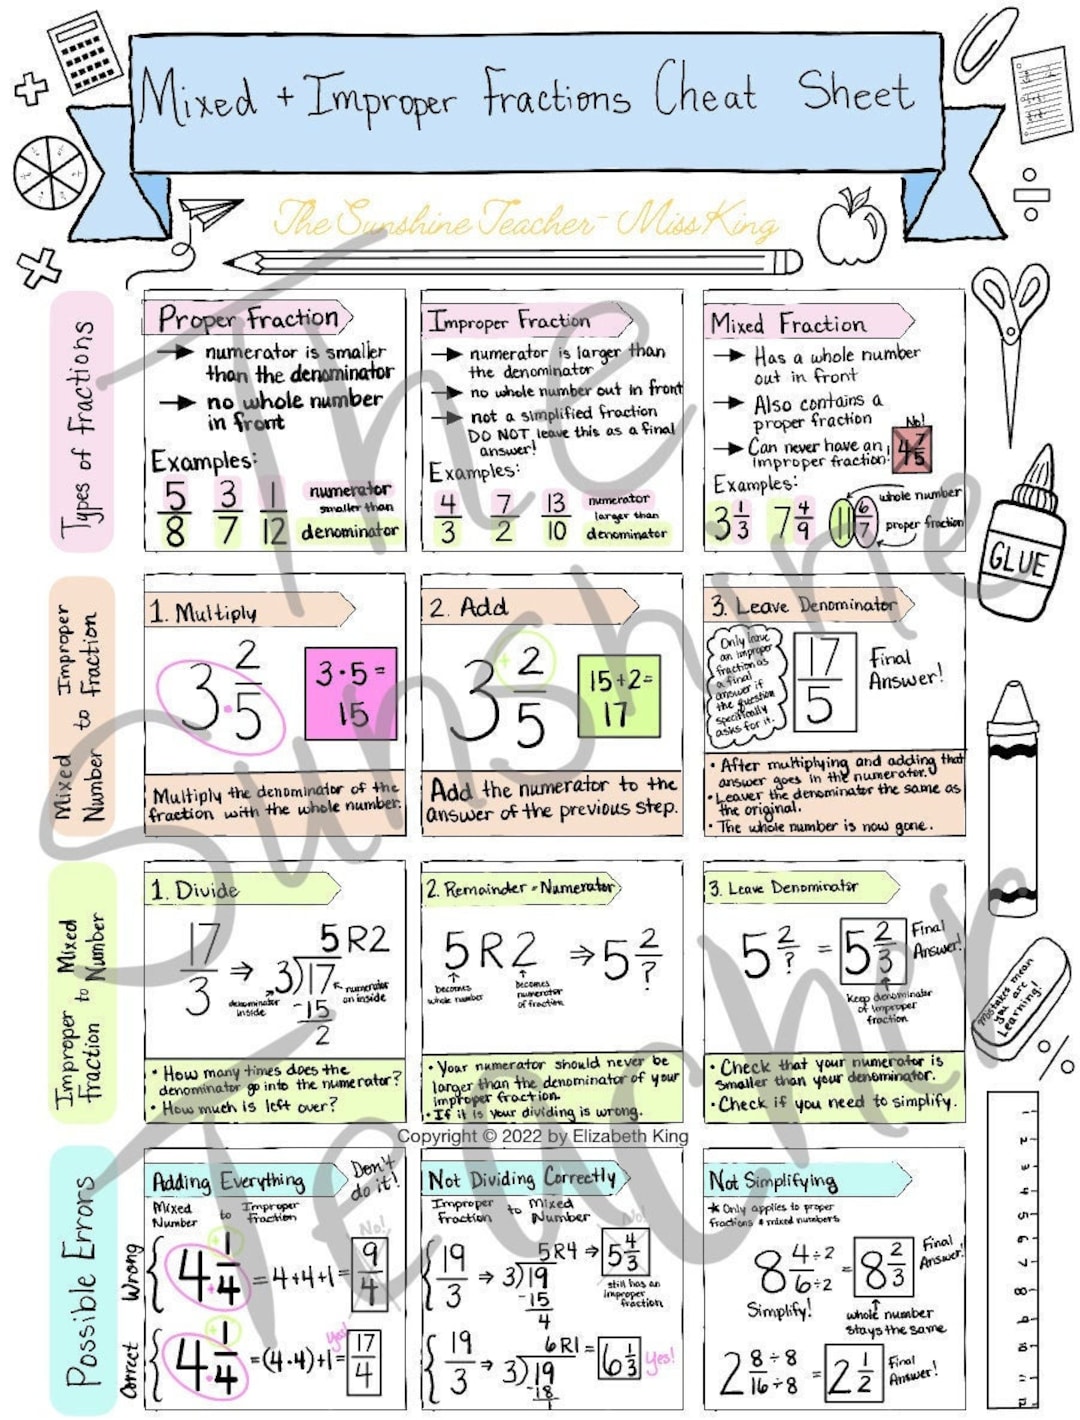 Mixed + Improper Fractions Cheat Sheet
The Sunshine Teacher - Miss King
The Sunshine Teacher
Types of Fractions
Proper Fraction
→ numerator is smaller
than the denominator
→ no whole number
in front
Examples:
5/8 3/7 1/12
numerator
smaller than
denominator
Improper Fraction
→ numerator is larger than
the denominator
→ no whole number out in front
→ not a simplified fraction
DO NOT leave this as a final
answer!
Examples:
4/3 7/2 13/10
numerator
larger than
denominator
Mixed Fraction
→ Has a whole number
out in front
→ Also contains a
proper fraction
→ Can never have an
improper fraction!
No!
4 7/5
Examples:
3 1/3 7 4/9 11 6/7
whole number
proper fraction
GLUE
Mixed Number to Improper Fraction
1. Multiply
3 2/5
3·5=
15
Multiply the denominator of the
fraction with the whole number.
2. Add
3 + 2/5
15+2=
17
Add the numerator to the
answer of the previous step.
3. Leave Denominator
Only leave
an improper
fraction as
a final
answer if
the question
specifically
asks for it.
17/5
Final
Answer!
• After multiplying and adding that
answer goes in the numerator.
• Leaver the denominator the same as
the original.
• The whole number is now gone.
Improper Fraction to Mixed Number
1. Divide
17/3 ⇒ 3)17
5 R2
-15
2
denominator
inside
numerator
on inside
• How many times does the
denominator go into the numerator?
• How much is left over?
2. Remainder = Numerator
5 R 2 ⇒ 5 2/?
becomes
whole number
becomes
numerator
of fraction
• Your numerator should never be
larger than the denominator of your
improper fraction.
• If it is your dividing is wrong.
3. Leave Denominator
5 2/? = 5 2/3
Final
Answer!
Keep denominator
of improper
fraction
• Check that your numerator is
smaller than your denominator.
• Check if you need to simplify.
Mistakes mean
you are
Learning!
Copyright © 2022 by Elizabeth King
Possible Errors
Adding Everything
Don't
do it!
Mixed
Number
to
Improper
fraction
Wrong
4 1/4 = 4+4+1 = 9/4
No!
Correct
4 1/4 = (4·4)+1 = 17/4
Yes!
Not Dividing Correctly
Improper
Fraction
to
Mixed
Number
19/3 ⇒ 3)19
5R4 ⇒ 5 4/3
-15
4
No!
still has an
improper
fraction
19/3 ⇒ 3)19
6 R1 = 6 1/3
-18
1
Yes!
Not Simplifying
* Only applies to proper
fractions & mixed numbers
8 4÷2/6÷2 = 8 2/3
Final
Answer!
Simplify!
whole number
stays the same
2 8÷8/16÷8 = 2 1/2
Final
Answer!
1
2
3
4
5
6
7
8
9
10
11
12